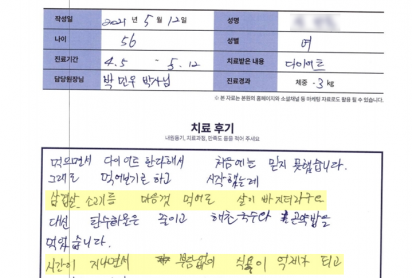 작성일 2021년 5월 12일 성명
나이 56 성별 여
진료기간 4.5 - 5.12 치료받은 내용 다이어트
담당원장님 박민우 박사님 진료경과 체중 -3kg
※ 본 자료는 본원의 홈페이지와 소셜채널 등 마케팅 자료로도 활용 될 수 있습니다.
치료 후기
내원동기, 치료과정, 만족도 등을 적어 주세요
먹으면서 다이어트 한다해서 처음에는 믿지 못했습니다.
그래도 먹어보기로 하고 시작했는데
삼겹살 소고기를 마음껏 먹어도 살이 빠지더라구요
대신 탄수화물은 줄이고 해초국수와 곤약밥을
먹었습니다.
시간이 지나면서 부담없이 식욕이 억제가 되고